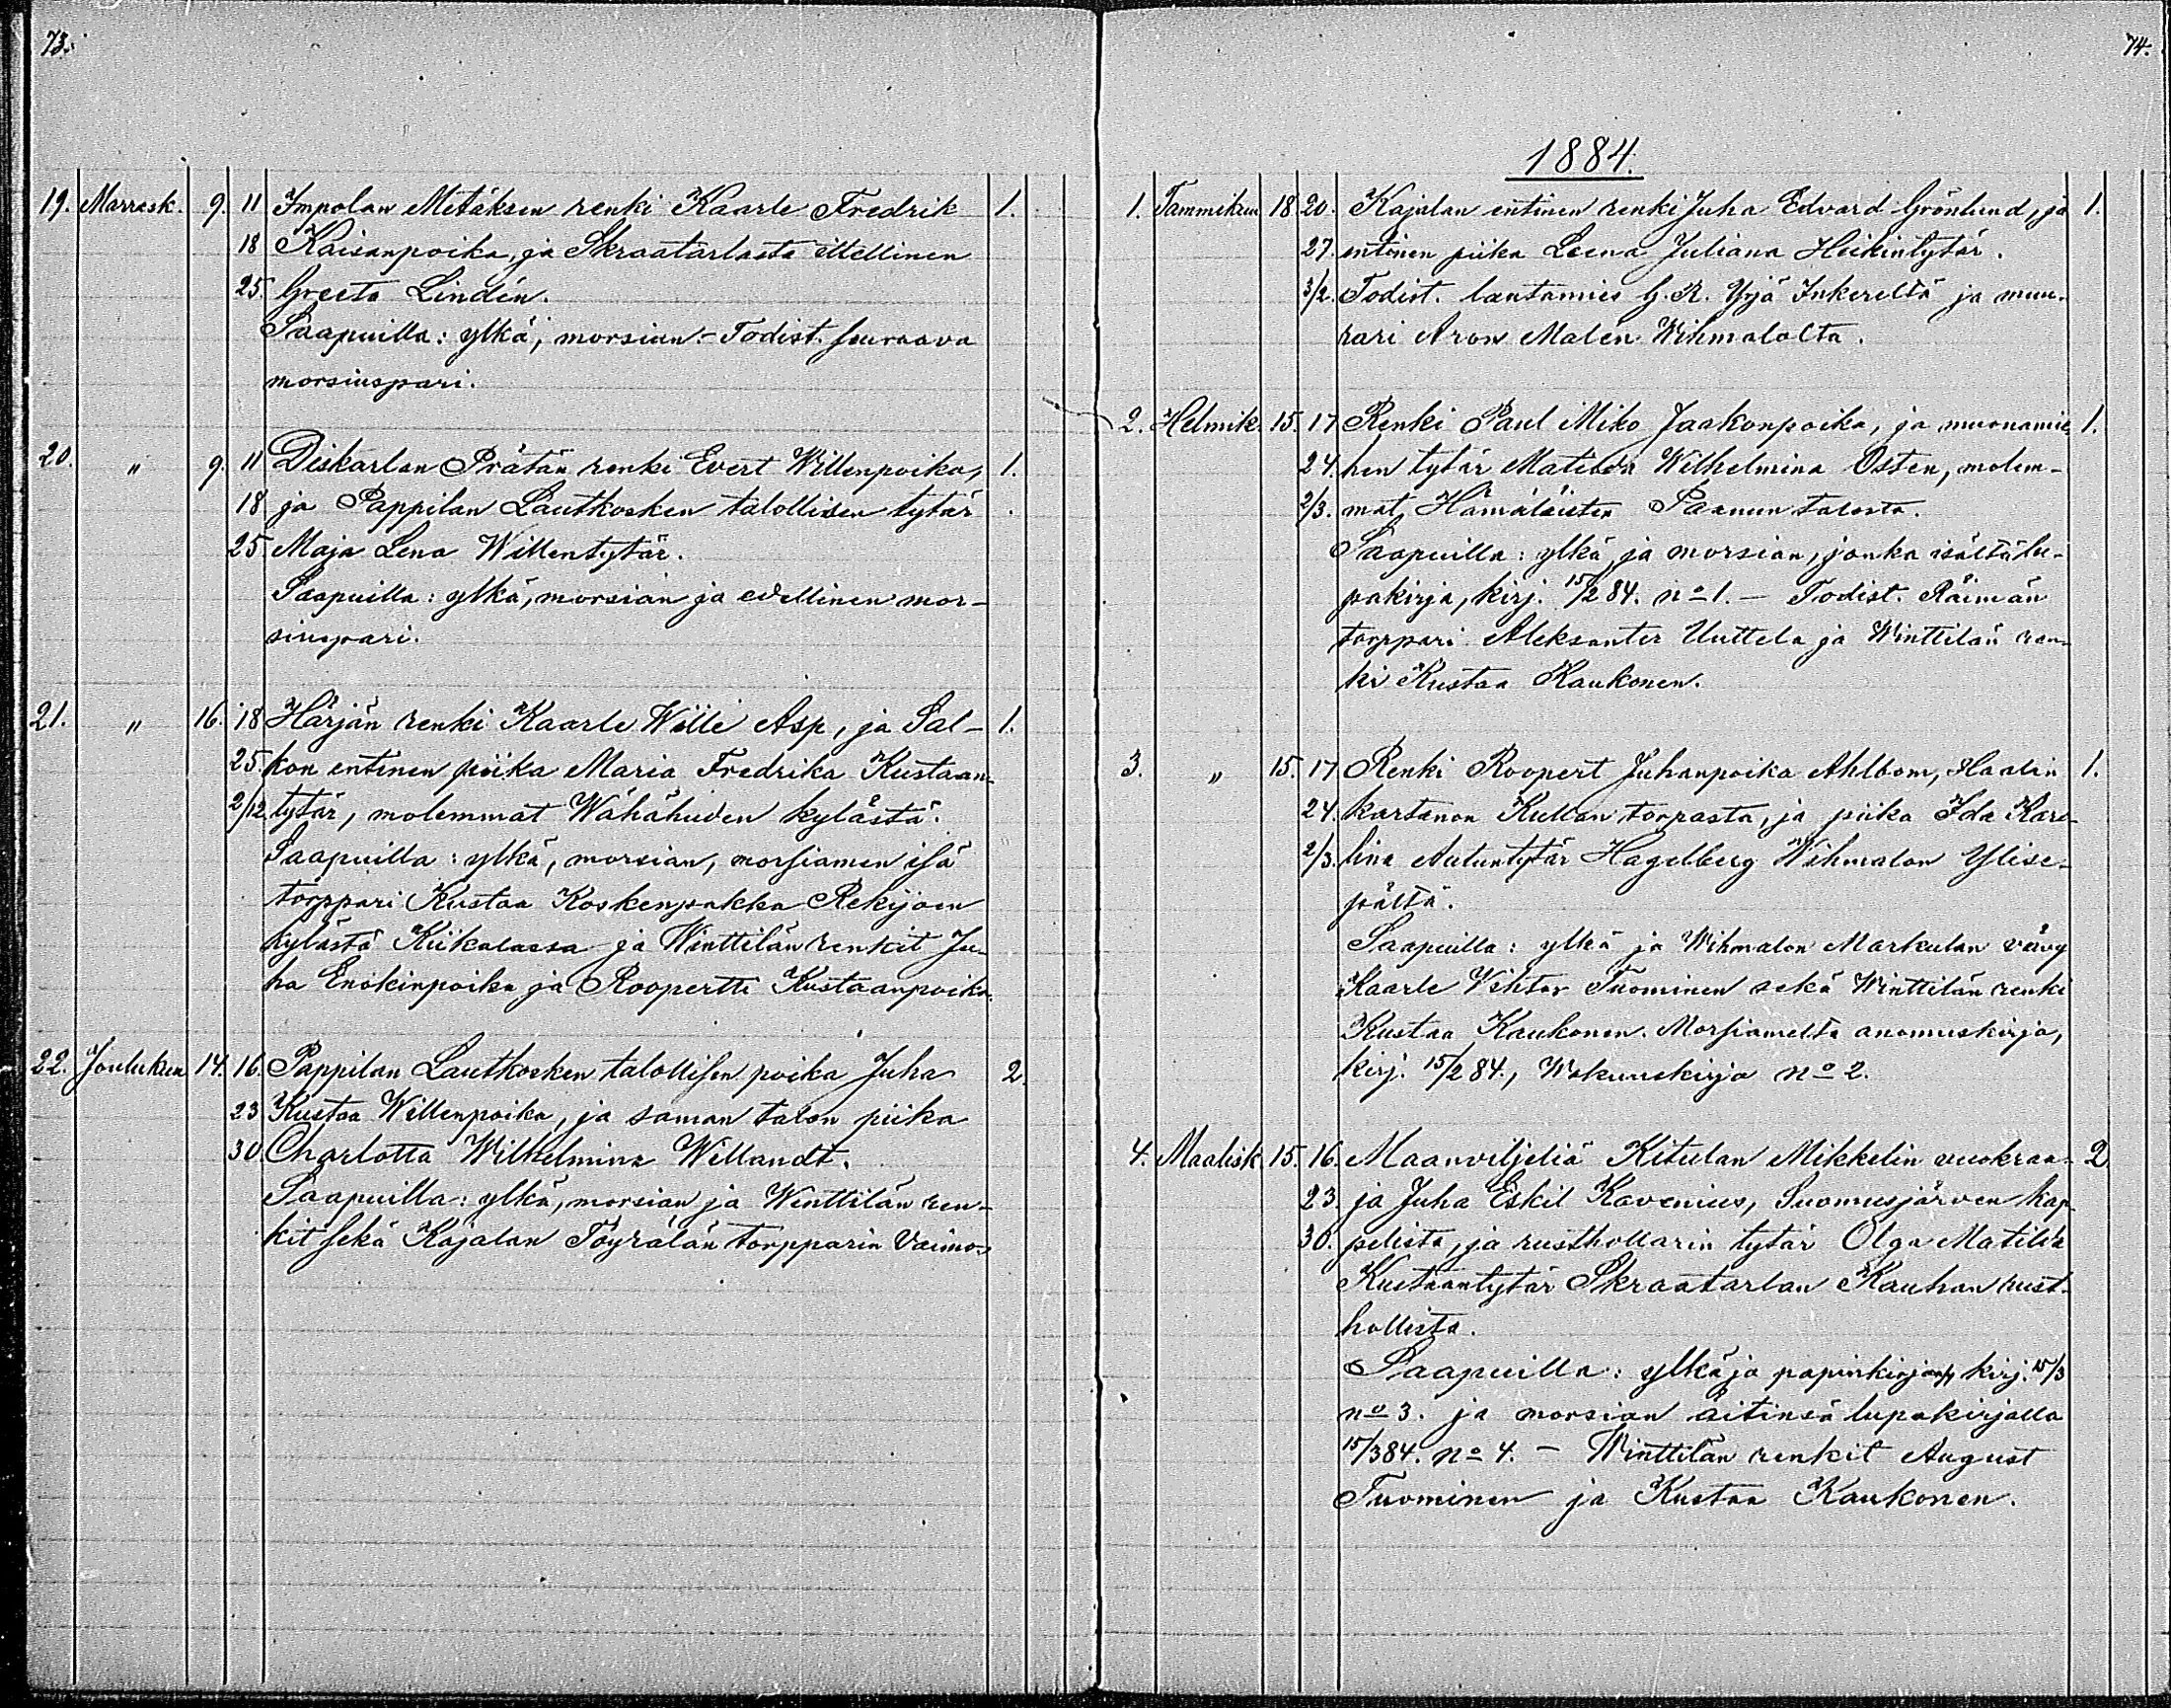 73.
19. Marrask. 9. 11 Impolan Metäksen renki Kaarle Fredrik 1.
18 Kaisanpoika, ja Skraatarlasta ittellinen
25. Greeta Lindén.
Saapuilla: ylkä, morsian. – Todist. seuraava
morsiuspari.
20. " 9. 11 Diskarlan Prätän renki Evert Willenpoika, 1.
18 ja Pappilan Lautkosken talollisen tytär
25 Maja Lena Willentytär.
Saapuilla: ylkä, morsian ja edellinen mor-
siuspari.
21. " 16. 18 Härjän renki Kaarle Wille Asp, ja Sal- 1.
25 kon entinen piika Maria Fredrika Kustaan-
2/12 tytär, molemmat Wähähiiden kylästä.
Saapuilla: ylkä, morsian, morsiamen isä
torppari Kustaa Koskenpakka Rekijoen
kylästä Kiikalassa ja Winttilän renkit Ju-
ha Enokinpoika ja Roopertti Kustaanpoika.
22. Joulukuu 14. 16. Pappilan Lautkosken talollisen poika Juha 2.
23 Kustaa Willenpoika, ja saman talon piika
30. Charlotta Wilhelmina Willandt.
Saapuilla: ylkä, morsian ja Winttilän ren-
kit sekä Kajalan Töyrälän torpparin vaimo.
74.
1884.
1. Tammikuu 18 20. Kajalan entinen renki Juha Edvard Grönlund, ja 1.
27. entinen piika Leena Juliana Heikintytär.
3/2. Todist. lautamies G. A. Yrjä Inkereltä ja muu-
rari Aron Malén Wihmalolta.
2. Helmik. 15. 17 Renki Paul Miko Jaakonpoika, ja muonamie- 1.
24. hen tytär Matilda Wilhelmina Osten, molem-
2/3. mat Hämäläisten Paanun talosta.
Saapuilla: ylkä ja morsian, jonka isältä lu-
pakirja, kirj. 15/2 84. no 1. – Todist. Räimän
torppari Aleksanter Uuttela ja Winttilän ren-
ki Kustaa Kaukonen.
3. " 15. 17 Renki Roopert Juhanpoika Ahlbom, Haalin 1.
24. kartanon Kullan torpasta, ja piika Ida Karo-
2/3. lina Antuntytär Hagelberg Wihmalon Ylise-
pältä.
Saapuilla: ylkä ja Wihmalon Markulan vävy
Kaarle Vihtor Tuominen sekä Winttilän renki
Kustaa Kaukonen. Morsiamelta anomuskirja,
kirj. 15/2 84., Wakuuskirja no 2.
4. Maalisk. 15. 16. Maanviljeliä Kitulan Mikkelin vuokraa- 2
23. ja Juha Eskil Kovenius, Suomusjärven kap-
30. pelista, ja rusthollarin tytär Olga Matilda
Kustaantytär Skraatarlan Kauhan rust-
hollista.
Saapuilla: ylkä ja papinkirja kirj. 15/3
no 3. ja morsian äitinsä lupakirjalla
15/3 84. no 4. – Winttilän renkit August
Tuominen ja Kustaa Kaukonen.